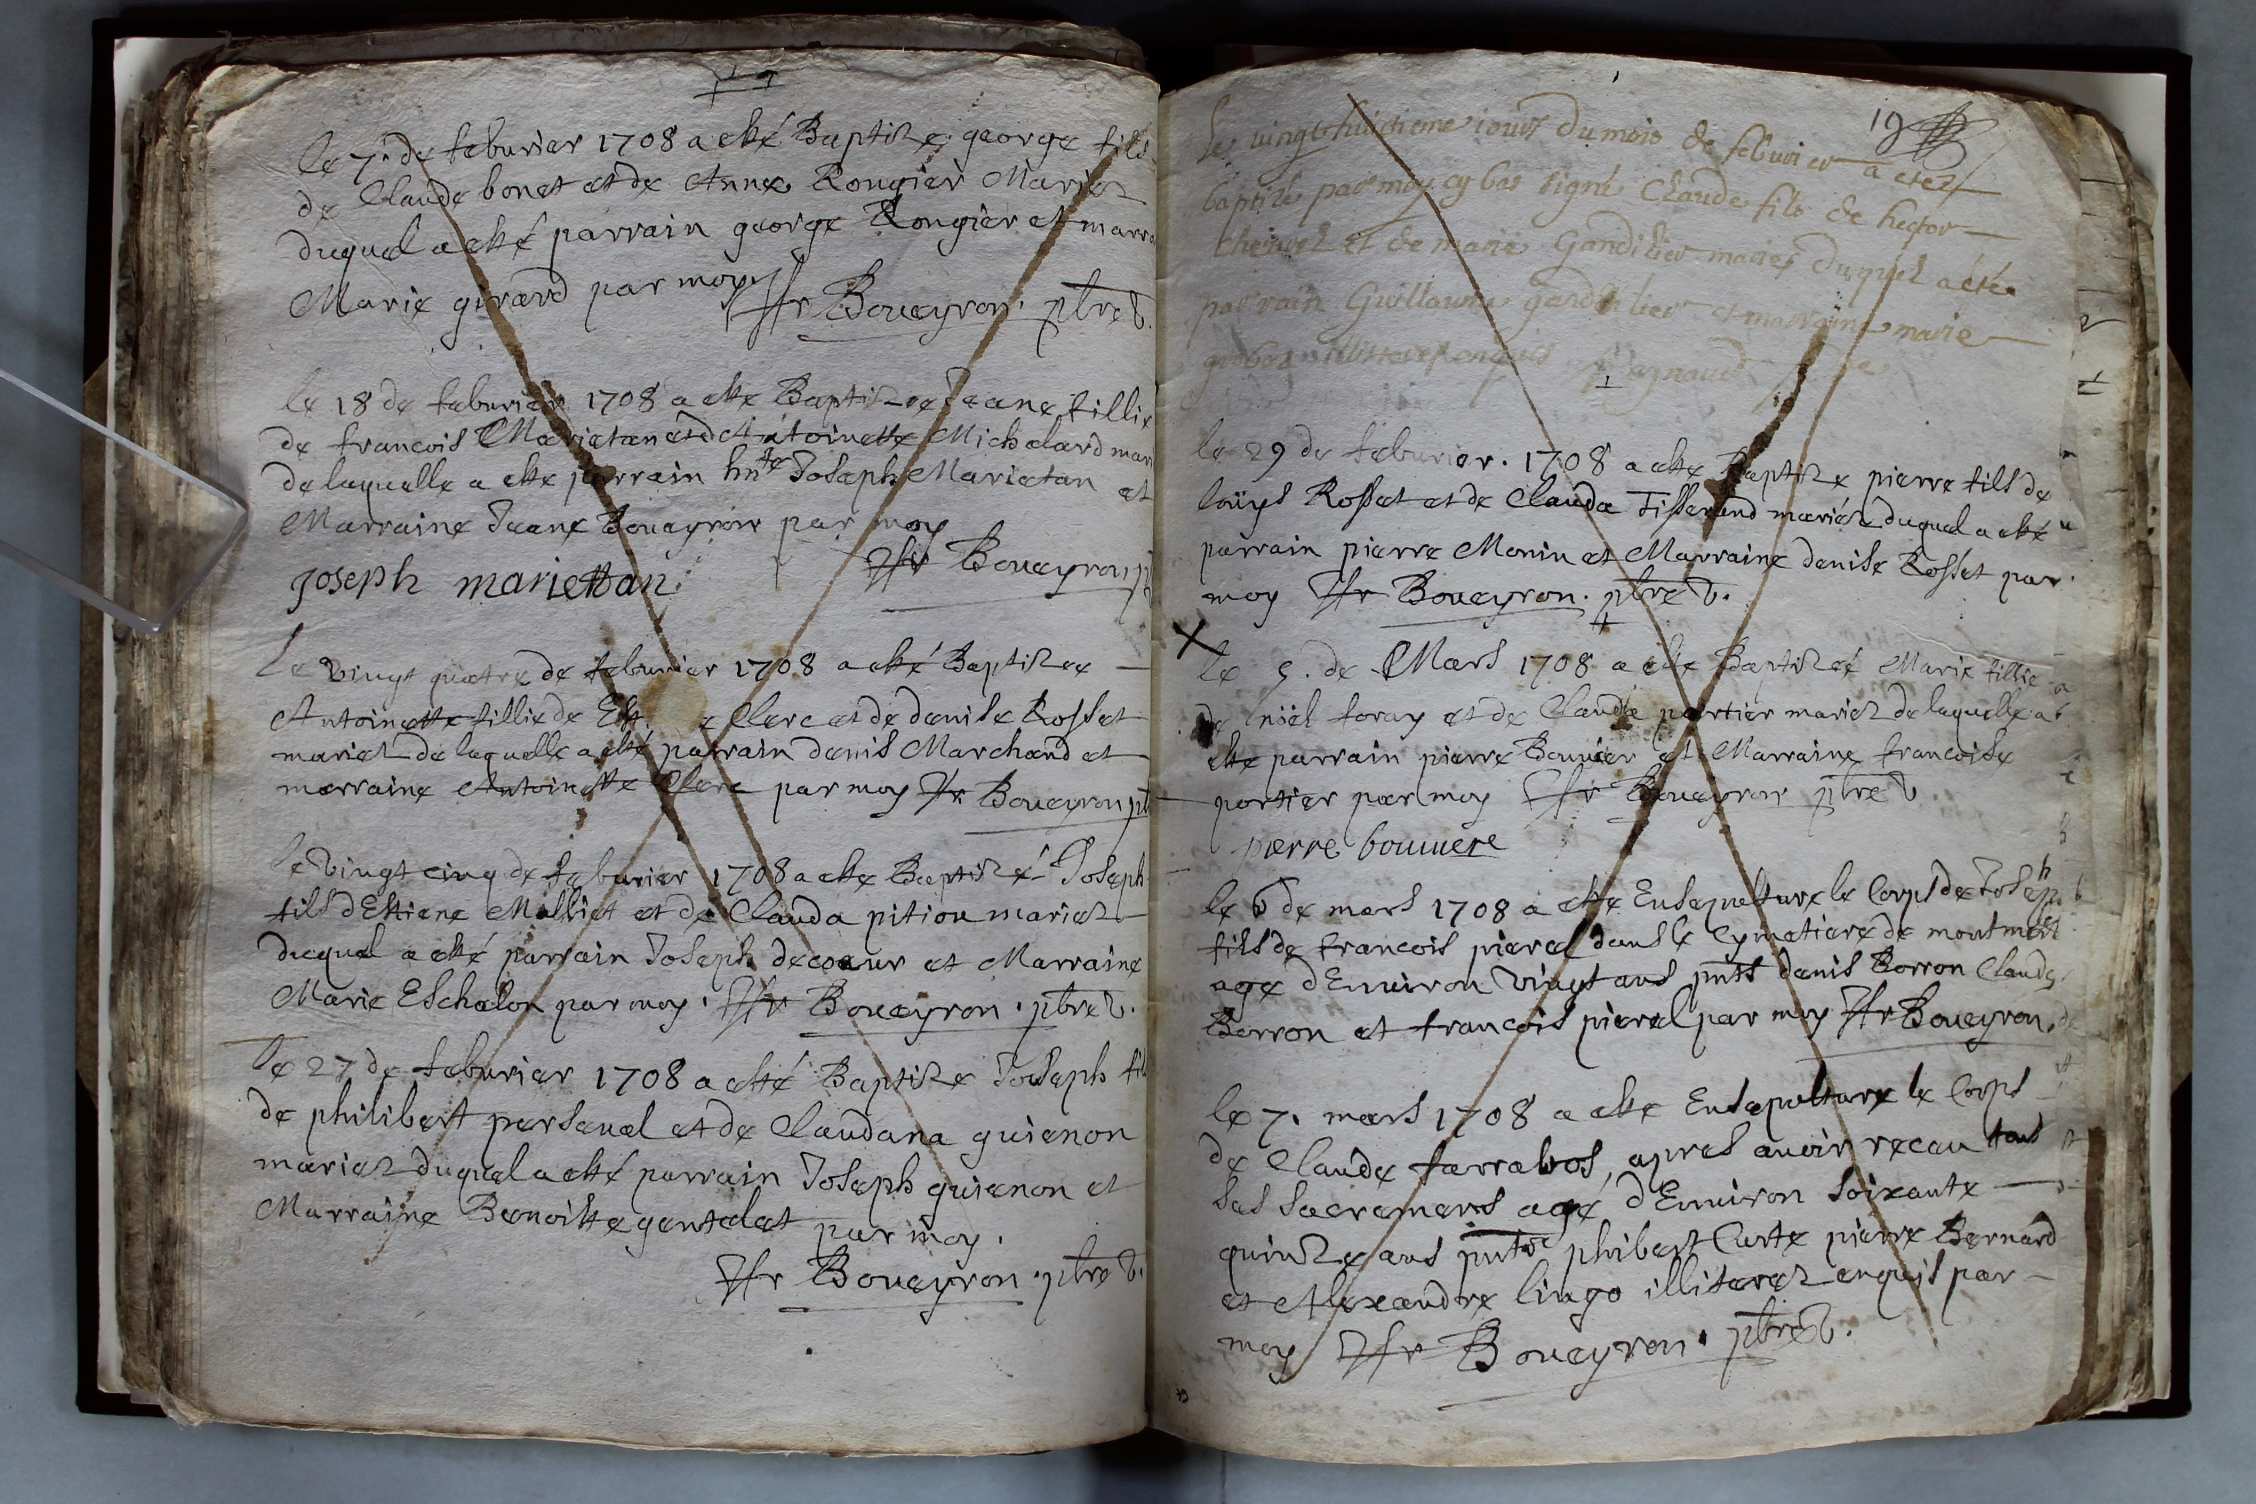 le 7. de feburier 1708 a esté Baptize george fils
de Claude bonet et de Anne Rougier Mariez
duquel a esté parrain george Rougier et marra
Marie girard par moy Boueyron ptre v.
le 18 de feburier 1708 a este Baptizee Jeane fillie
de francois Marietan et dAntoinette Michalard mari
de laquelle a este parrain hnte Joseph Marietan et
Marraine Jeane Boueyron par moy
Boueyron
Joseph mariettan
Le vingt quatre de feburier 1708 a esté Baptizee
Antoinette fillie de Clerc et de denise Rosset
mariez de laquelle a esté parrain denis Marchand et
marraine Antoinette Clerc par moy Boueyron pt
le vingt cinq de feburier 1708 a este Baptizé Joseph
fils dEstiene Milliet et de Clauda pition mariez
duquel a esté parrain Joseph decoeur et Marraine
Marie Eschalon par moy. Boueyron. ptre v.
le 27 de feburier 1708 a esté Baptize Joseph fil
de philibert perseual et de Claudana guienon
mariez duquel a esté parrain Joseph guienon et
Marraine Benoiste gentelet par moy.
Boueyron. ptre v.
19
Le vingt huictieme iour du mois de feburier a estez
baptize par moy cy bas signé Claude fils de hector
et de marie Gandilier maries duquel a este
parrain Guillaume gandilier et marraine marie
enquis
le 29 de feburier. 1708 a este Baptize pierre fils de
loüys Rosset et de Clauda Tisserand mariéz duquel a esté
parrain pierre Monin et Marraine denise Rosset par
moy Boueyron. ptre v.
le 5. de Mars 1708 a este Baptizeé Marie fillie
de niel foray et de Claudie portier mariez de laquelle a
este parrain pierre Bouuier et Marraine francoise
portier par moy Boueyron ptre v
pierre bouuere
le 6 de mars 1708 a este Ensepulture le Corps de Joseph
fils de francois pieral dans le Cymetiere de montmeit
age dEnuiron vingt ans pnts denis Borron Claude
Borron et francois pieral par moy Boueyron.
le 7. mars 1708 a este Ensepulture le Corps
de Claude farrabos, apres auoir receu tous
ses sacremens agé dEnuiron soixante
quinze ans pnts phibert Curte pierre Bernard
et Alexandre lingo illiterez enquis par
moy Boueyron. ptre v.